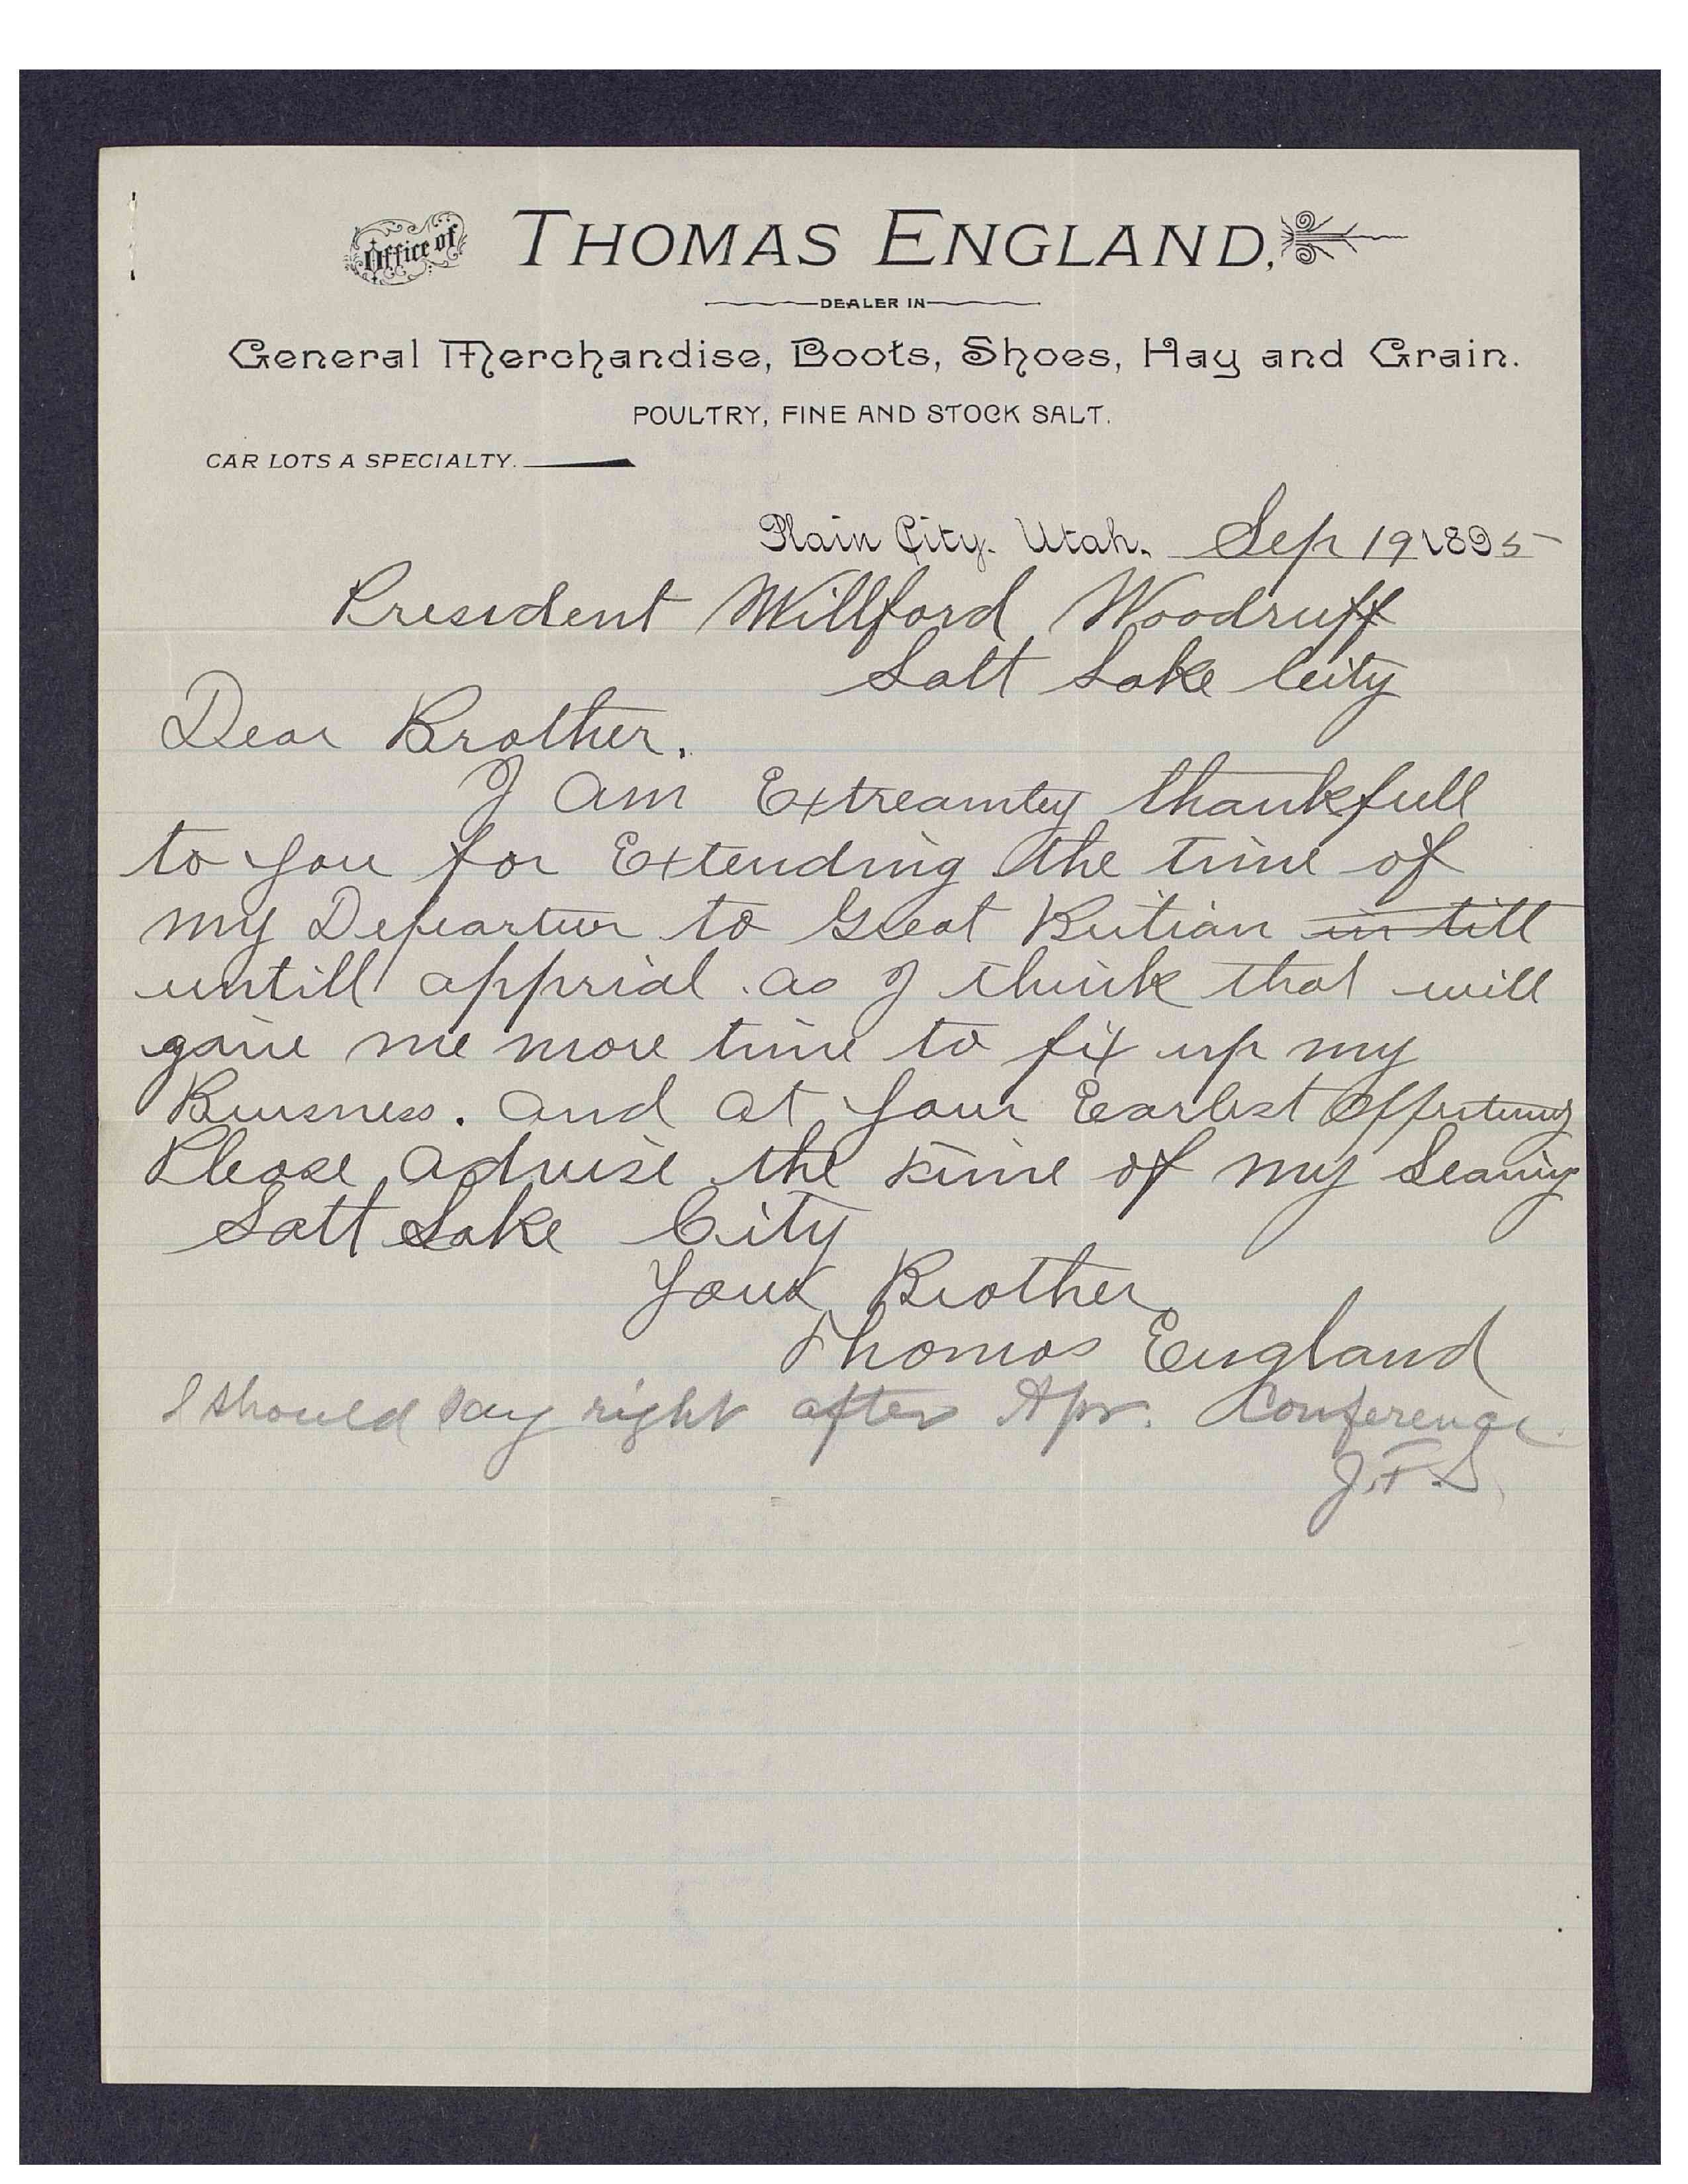 Office of THOMAS ENGLAND,
DEALER IN
General Merchandise, Boots, Shoes, Hay and Grain.
POULTRY, FINE AND STOCK SALT.
CAR LOTS A SPECIALTY.
Plain City, Utah, Sep 19 1895
President Willford Woodruff
Salt Lake City
Dear Brother.
I am Extreamley thankfull
to you for Extending the time of
my Departur to Great Britian in till
untill apprial. as I think that will
gaine me more time to fix up my
Buisness. and at your Earlest
Please advise the time of my Leaving
Salt Lake City
Your Brother
Thomas England
I should say right after Apr. Conference.
J.F.S.